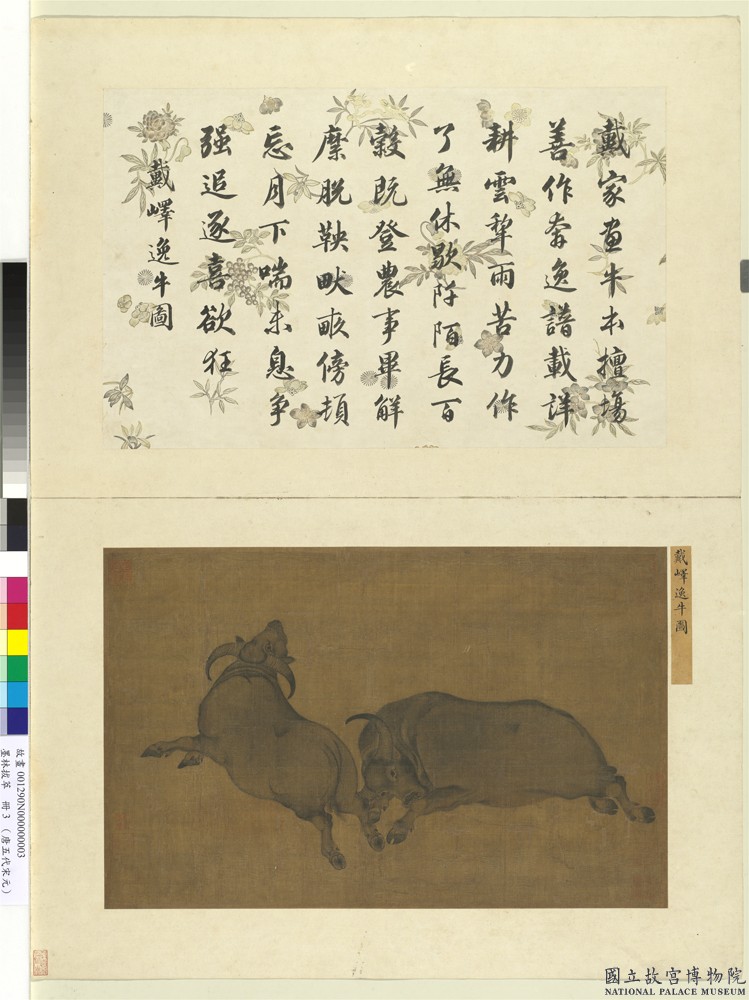 戴家畫牛本擅塲
善作奔逸譜載詳
耕雲犂雨苦力作
了無休歇阡陌長百
穀既登農事畢解
縻脫鞅畎畝傍頓
忘月下喘未息爭
强追逐喜欲狂
戴嶧逸牛圖
戴嶧逸牛圖
故畫 001290N000000003
墨林拔萃 冊3 （唐五代宋元）
國立故宮博物院
NATIONAL PALACE MUSEUM